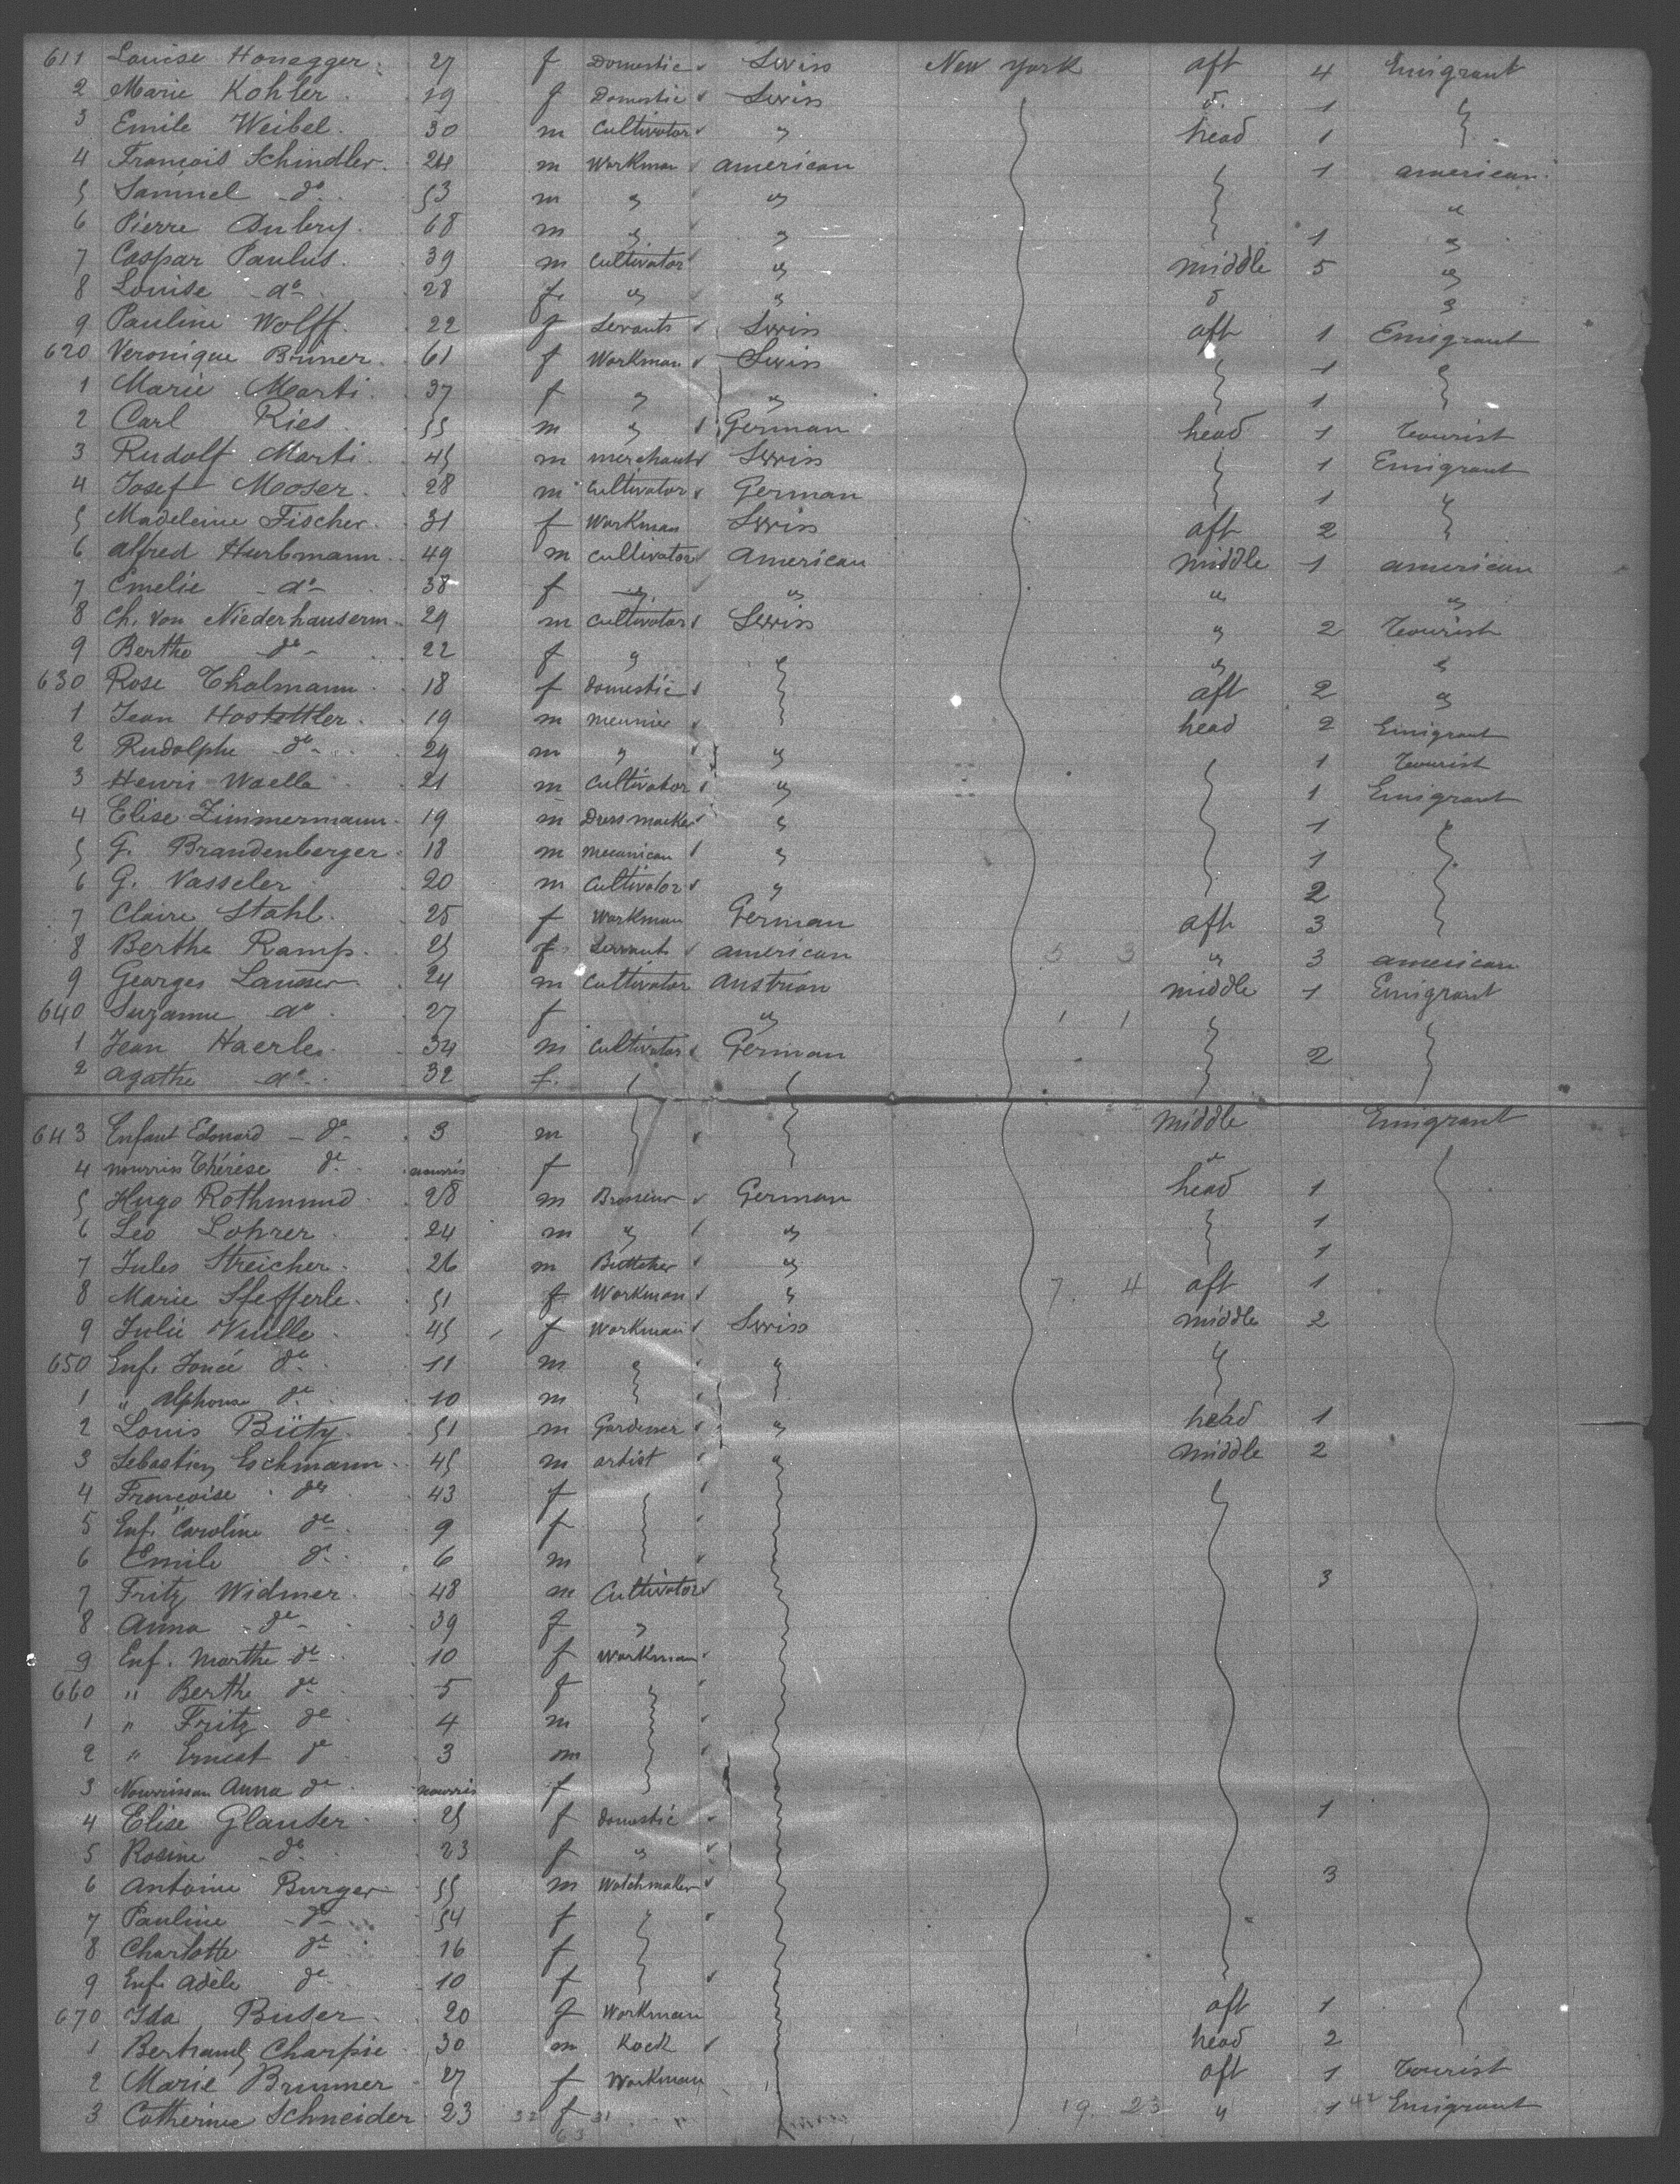 611 Louise Honegger 27 f Domestic Swiss New York aft 4 Emigrant
2 Marie Kohler 19 f Domestic Swiss d. 1 "
3 Emile Weibel 30 m Cultivator " head 1
4 François Schindler 24 m Workman american 1 american
5 Samuel do 53 m " " "
6 Pierre Aubry 68 m " " 1 "
7 Caspar Paulus 39 m Cultivator " middle 5 "
8 Louise do 28 f " " d "
9 Pauline Wolff 22 f Servants Swiss aft 1 Emigrant
620 Veronique Brüner 61 f Workman Swiss 1 "
1 Marie Marti 37 f " " 1
2 Carl Ries 55 m " German head 1 Tourist
3 Rudolf Marti 45 m merchant Swiss 1 Emigrant
4 Josef Moser 28 m Cultivator German 1 "
5 Madeleine Fischer 31 f Workman Swiss aft 2
6 alfred Hurbmann 49 m cultivator American middle 1 american
7 Emelie do 38 f " " " "
8 Ch. von Niederhauserm 29 m Cultivator Swiss " 2 Tourist
9 Berthe do 22 f " " " "
630 Rose Tholmann 18 f domestic aft 2 "
1 Jean Hostettler 19 m meunier head 2 Emigrant
2 Rudolphe do 29 m " " 1 Tourist
3 Henri Waelle 21 m Cultivator " 1 Emigrant
4 Elise Zimmermann 19 m Dressmacker " 1
5 G. Brandenberger 18 m mecanican " 1
6 G. Vasseler 20 m Cultivator " 2
7 Claire Stahl 25 f Workman German aft 3
8 Berthe Ramp 25 f Servants american 5 3 " 3 american
9 Georges Lausser 24 m Cultivator austrian middle 1 Emigrant
640 Suzanne do 27 f " 1 1
1 Jean Haerle 34 m Cultivator German 2
2 agathe do 32 f.
643 Enfant Edouard do 3 m middle Emigrant
4 nourriss Thérèse do nourris f "
5 Hugo Rothmund 28 m Brasseur German head 1
6 Leo Lohrer 24 m " " 1
7 Jules Streicher 26 m Buttcher " 1
8 Marie Sfefferle 51 f Workman " 7 4 aft 1
9 Julie Vuille 45 f Workman Swiss middle 2
650 Enf. do 11 m " "
1 " alphonse do 10 m
2 Louis Büty 51 m Gardener " head 1
3 Sebastien Eschmann 45 m artist " middle 2
4 Françoise do 43 f
5 Enf. Caroline do 9 f
6 Emile do 6 m
7 Fritz Widmer 48 m Cultivator 3
8 Anna do 39 f "
9 Enf. Marthe do 10 f Workman
660 " Berthe do 5 f
1 " Fritz do 4 m
2 " Ernest do 3 m
3 Nourrisson Anna do nourris f
4 Elise Glauser 25 f domestic 1
5 Rosine do 23 f "
6 Antoine Burger 55 m Watchmaker 3
7 Pauline do 54 f
8 Charlotte do 16 f
9 Enf. Adèle do 10 f
670 Ida Buser 20 f Workman aft 1
1 Bertrand Charpie 30 m Kock head 2
2 Marie Brunner 27 f Workman aft 1 Tourist
3 Catherine Schneider 23 32 f 31 " 19. 23 " 1 42 Emigrant
63